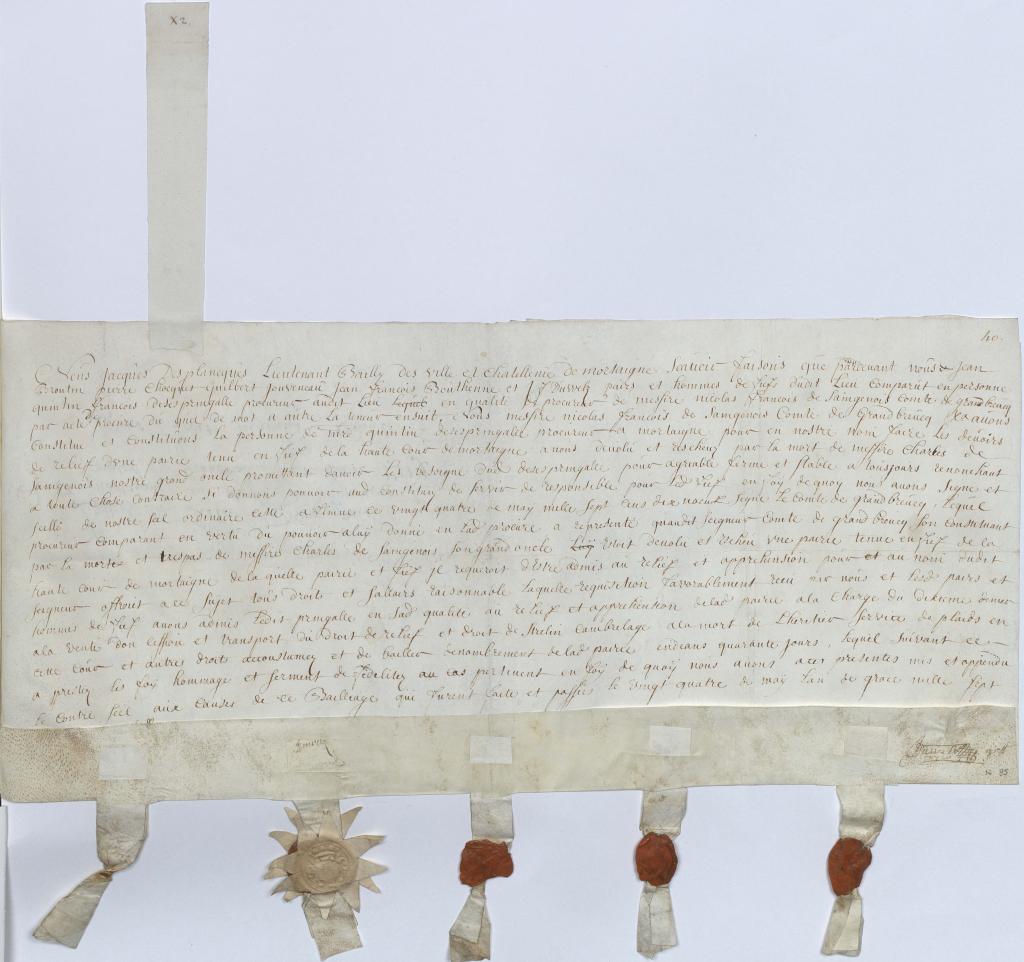 X2.
40.
Nous Jacques Desplancques Lieutenant Bailly des ville et Chatellenie de mortaigne scavoir faisons que pardevant nous Jean
Broutin pierre Chocquet Guilbert Jouveneau Jean François Bouthenne et pairs et hommes de fiefs dudit Lieu Comparut en personne
quintin françois desespringalle procureur audit Lieu Lequel en qualité de procureur de messire nicolas François de Saingenois comte de grandbreucq
par acte procure du quel de mot a autre La teneur ensuit, Nous messire nicolas françois de Saingenois Comte de Grandbreucq avons
Constitué et Constituons La personne de quintin desespringalle procureur a mortaigne pour en nostre nom faire Les devoirs
de relief d'une pairie tenu en fief de la haute Cour de mortaigne a nous devolu et rescheu par la mort de messire Charles de
Saingenois nostre grand oncle promettant d'avoir Les besoigne dud desespringalle pour agreable ferme et stable a tousjours renonchant
a toute Chose contraire si donnons pouvoir aud constitué de servir de responsible pour led fief en foÿ de quoy nous avons signe et
scellé de nostre seel ordinaire cette a ce vingt quatre de may mille sept cens dix noeuf signe Le comte de grandbreucq, Lequel
procureur comparant en vertu du pouvoir a luÿ donné en lad procure a representé quaudit seigneur comte de grand breucq son constituant
par la morte et trespas de messire Charles de Saingenois son grand oncle Luy estoit devolu et escheu une pairie tenue en fief de la
haute cour de mortaigne de la quelle pairie et fief il requeroit d'estre admis au relief et apprehension pour et au nom dudit
seigneur offroit a ce sujet tous droits et sallairs raisonnable Laquelle requisition favorablement receu par nous et lesd pairs et
hommes de fief avons admis Ledit pringalle en sad qualité au relief et apprehension de lad pairie a la Charge du dixieme denier
a la vente don cession et transport du droit de relief et droit de Cambrelage a la mort de L'heritier service de plaids en
cette cour et autres droits accoustumez et de bailler denombrement de lad pairie endeans quarante jours, Lequel suivant ce
a presté les foÿ hommage et serment de fidelitez au cas pertinent en foÿ de quoÿ nous avons a ces presentes mis et appendu
le contre seel aux causes de ce Bailliage qui furent faite et passées le vingt quatre de may Lan de grace mille sept
85